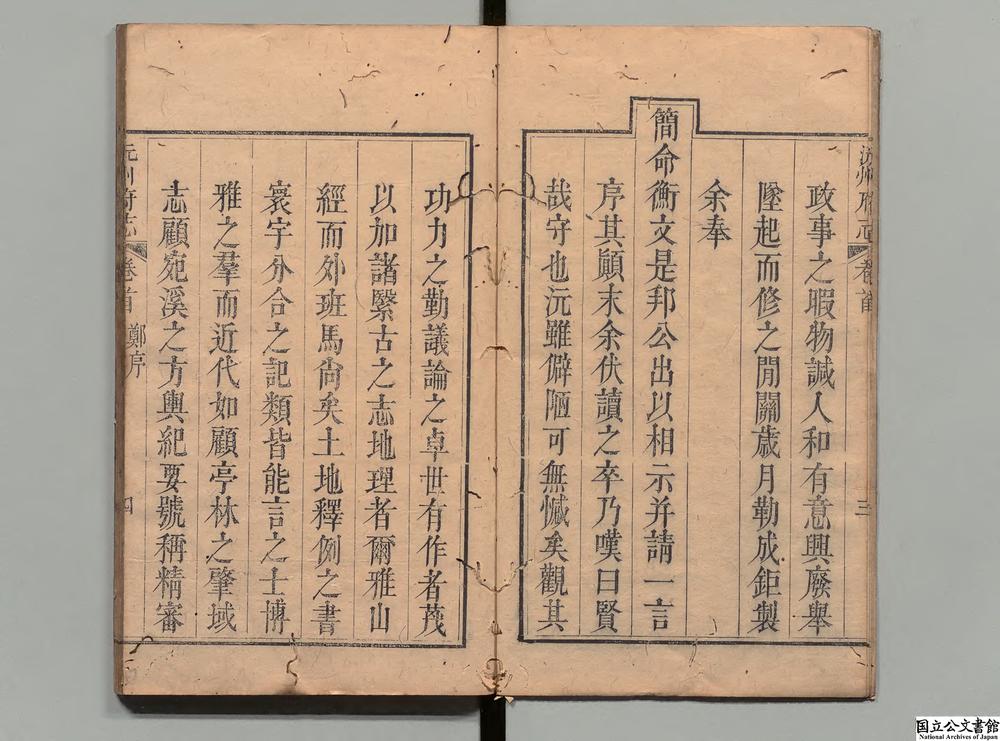 沅州府志 卷首 三
政事之暇物諴人和有意興廢舉
墜起而修之閒關歲月勒成鉅製
余奉
簡命衡文是邦公出以相示并請一言
序其顛末余伏讀之卒乃嘆曰賢
哉守也沅雖僻陋可無憾矣觀其
功力之勤議論之卓世有作者蔑
以加諸緊古之志地理者爾雅山
經而外班馬尚矣土地釋例之書
寰宇分合之記類皆能言之士博
雅之羣而近代如顧亭林之肇域
志顧宛溪之方輿紀要號稱精審
沅州府志 卷首 鄭序 四
国立公文書館
National Archives of Japan